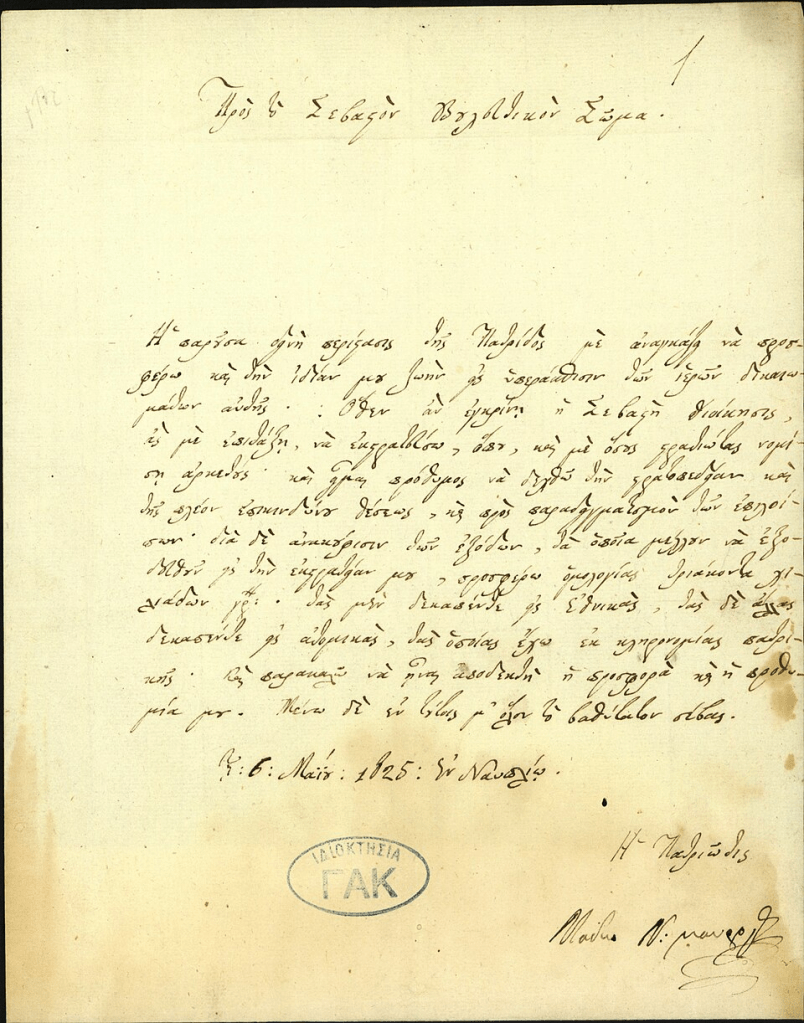 1
Πρὸς τὸ Σεβαστὸν Βουλευτικὸν Σῶμα.
Ἡ παροῦσα δεινὴ περίστασις τῆς Πατρίδος μὲ ἀναγκάζει νὰ προσ-
φέρω καὶ τὴν ἰδίαν μου ζωὴν εἰς ὑπεράσπισιν τῶν ἱερῶν δικαιω-
μάτων αὐτῆς. : Ὅθεν ἂν ἐγκρίνῃ ἡ Σεβαστὴ διοίκησις,
ἂς μὲ ἐπιτάξῃ, νὰ ἐκστρατεύσω, ὅπου, καὶ μὲ ὅσους στρατιώτας νομί-
σῃ ἀρκετούς· καὶ εἶμαι πρόθυμος νὰ δεχθῶ τὴν καὶ
τῆς πλέον ἐπικινδύνου θέσεως, καὶ πρὸς παραδειγματισμὸν τῶν ἐπιλοί-
πων· διὰ δὲ ἀνακούφισιν τῶν ἐξόδων, τὰ ὁποῖα μέλλουν νὰ ἐξο-
δευθοῦν εἰς τὴν ἐκστρατείαν μου, προσφέρω ὁμολογίας τριάκοντα χι-
λιάδων γρ: . τὰς μὲν δεκαπέντε εἰς ἐθνικάς, τὰς δὲ ἄλλας
δεκαπέντε εἰς ἀτομικάς, τὰς ὁποίας ἔχω ἐκ κληρονομίας πατρι-
κῆς. Καὶ παρακαλῶ νὰ ἦναι ἀποδεκτὴ ἡ προσφορὰ καὶ ἡ προθυ-
μία μου. Μένω δὲ ἐν τούτοις μ' ὅλον τὸ βαθύτατον σέβας.
Τῇ: 6: Μαΐου: 1825: Ἐν Ναυπλίῳ.
Ἡ Πατριώτις
Μαδω Ν: μαυρο
ΙΔΙΟΚΤΗΣΙΑ
ΓΑΚ